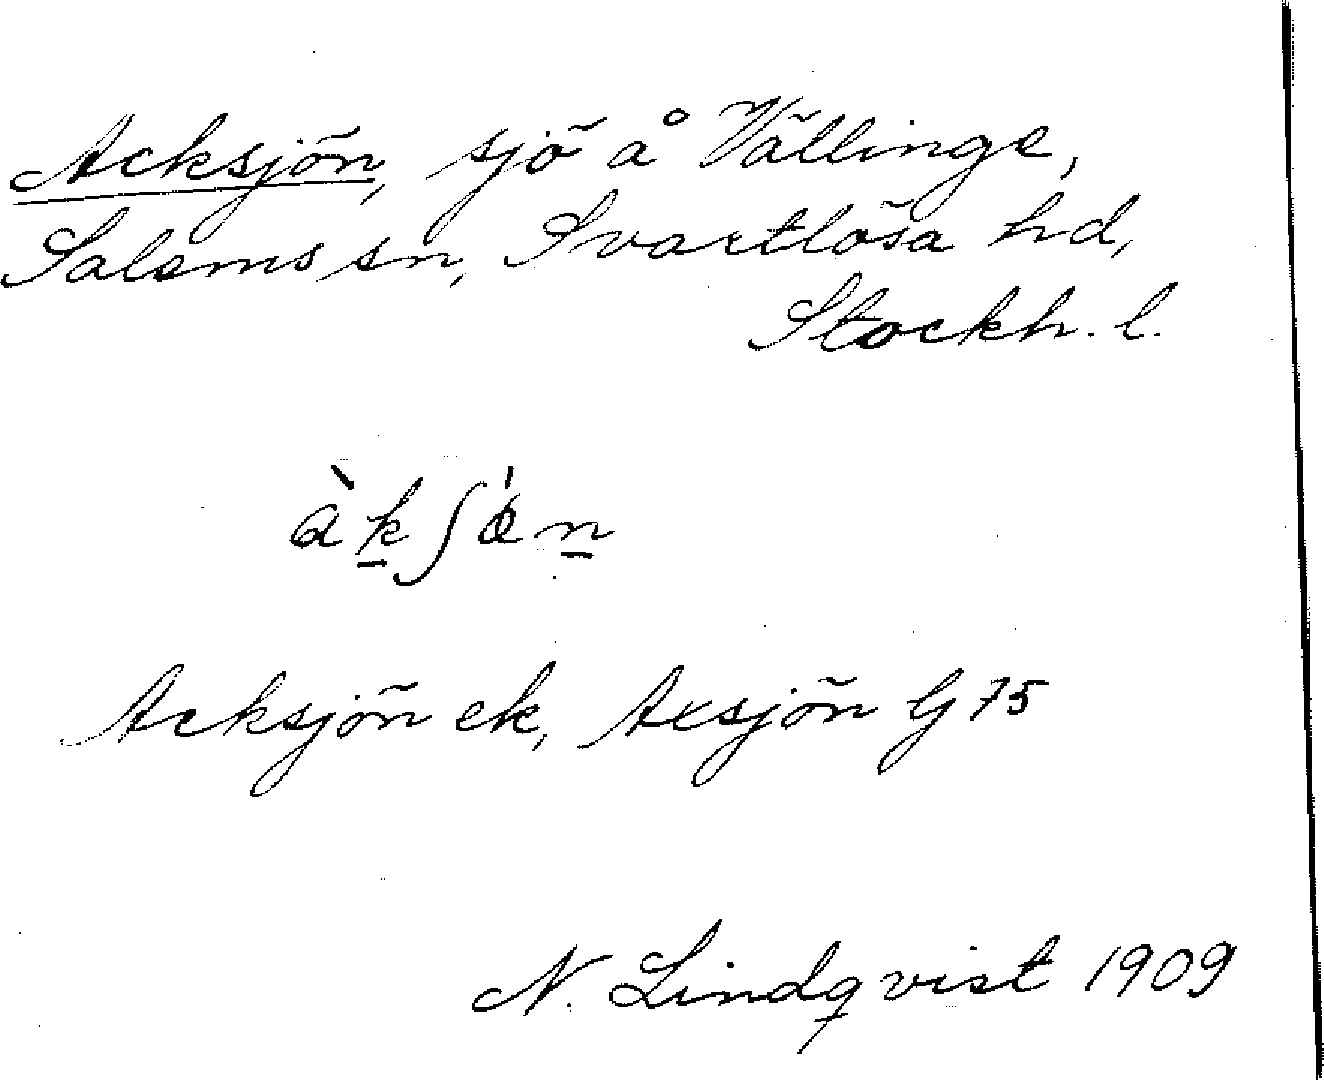 Acksjön, sjö å Vällinge,
Salems sn, Svartlösa hd,
Stockh. l.
àkʃø̀n
Acksjön ek, Axsjön G 75
N. Lindqvist 1909